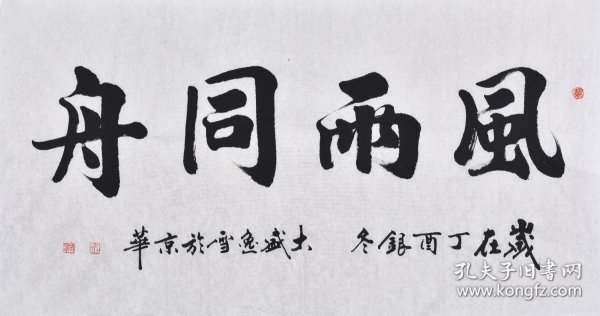 風雨同舟
歲在丁酉銀冬 雪於京華
孔夫子旧书网
www.kongfz.com